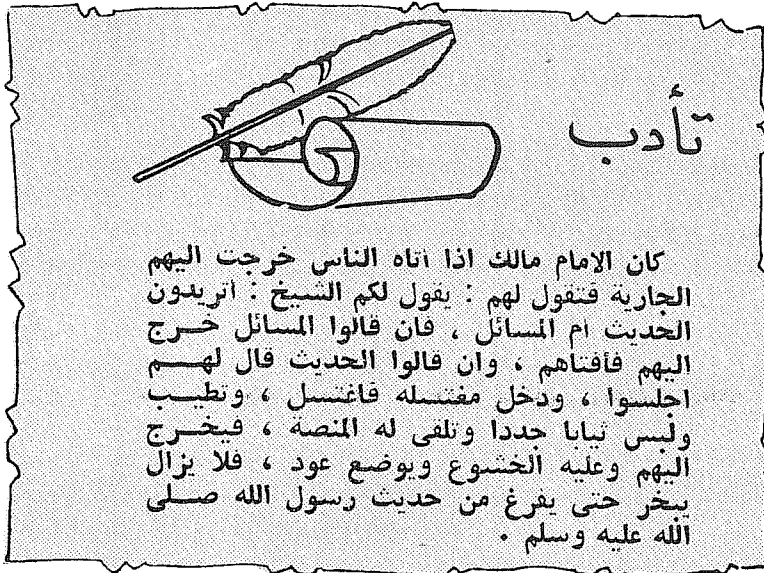 تأدب
كان الامام مالك اذا اتاه الناس خرجت اليهم
الجارية فتقول لهم : يقول لكم الشيخ : اتريدون
الحديث ام المسائل ، فان قالوا المسائل خـرج
اليهم فأفتاهم ، وان قالوا الحديث قال لهــم
اجلسوا ، ودخل مغتسله فاغتسل ، وتطيـب
ولبس ثيابا جددا وتلقى له المنصة ، فيخــرج
اليهم وعليه الخشوع ويوضع عود ، فلا يزال
يبخر حتى يفرغ من حديث رسول الله صـلى
الله عليه وسلم .